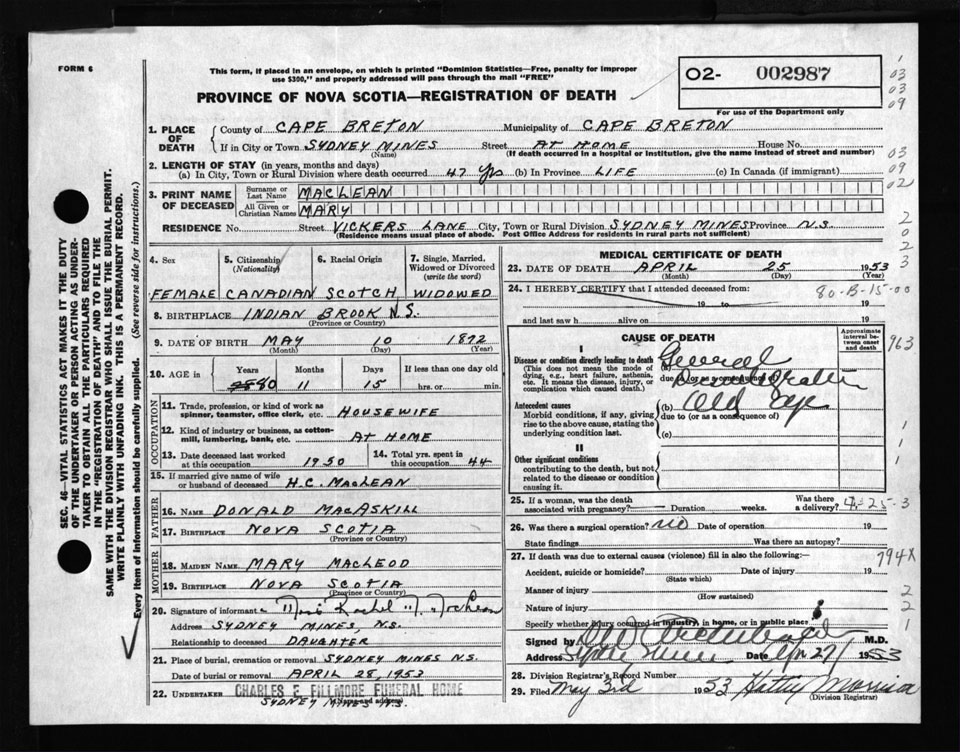 FORM 6
This form, if placed in an envelope, on which is printed "Dominion Statistics—Free, penalty for improper
use $300," and properly addressed will pass through the mail "FREE"
PROVINCE OF NOVA SCOTIA—REGISTRATION OF DEATH
02- 002987
For use of the Department only
1. PLACE OF DEATH
County of CAPE BRETON Municipality of CAPE BRETON
If in City or Town SYDNEY MINES Street AT HOME House No.
(Name) (If death occurred in a hospital or institution, give the name instead of street and number)
2. LENGTH OF STAY (in years, months and days)
(a) In City, Town or Rural Division where death occurred 47 Yrs (b) In Province LIFE (c) In Canada (if immigrant)
3. PRINT NAME OF DECEASED
Surname or Last Name MACLEAN
All Given or Christian Names MARY
RESIDENCE No. Street VICKERS LANE City, Town or Rural Division SYDNEY MINES Province N.S.
(Residence means usual place of abode. Post Office Address for residents in rural parts not sufficient)
4. Sex 5. Citizenship (Nationality) 6. Racial Origin 7. Single, Married, Widowed or Divorced (write the word)
FEMALE CANADIAN SCOTCH WIDOWED
8. BIRTHPLACE INDIAN BROOK N.S.
(Province or Country)
9. DATE OF BIRTH MAY 10 1872
(Month) (Day) (Year)
10. AGE in Years Months Days If less than one day old
80 11 15 hrs. or min.
OCCUPATION
11. Trade, profession, or kind of work as spinner, teamster, office clerk, etc. HOUSEWIFE
12. Kind of industry or business, as cotton-mill, lumbering, bank, etc. AT HOME
13. Date deceased last worked at this occupation 1950
14. Total yrs. spent in this occupation 44
15. If married give name of wife or husband of deceased H.C. MACLEAN
FATHER
16. NAME DONALD MACASKILL
17. BIRTHPLACE NOVA SCOTIA
(Province or Country)
MOTHER
18. MAIDEN NAME MARY MACLEOD
19. BIRTHPLACE NOVA SCOTIA
(Province or Country)
20. Signature of informant Rachel
Address SYDNEY MINES, N.S.
Relationship to deceased DAUGHTER
21. Place of burial, cremation or removal SYDNEY MINES N.S.
Date of burial or removal APRIL 28, 1953
22. UNDERTAKER CHARLES E. FILLMORE FUNERAL HOME
(Name and address)
SYDNEY MINES N.S.
MEDICAL CERTIFICATE OF DEATH
23. DATE OF DEATH APRIL 25 1953
(Month) (Day) (Year)
24. I HEREBY CERTIFY that I attended deceased from:
19 to 19
80-B-15-00
and last saw h alive on 19
CAUSE OF DEATH
Approximate interval between onset and death
I
Disease or condition directly leading to death
(This does not mean the mode of dying, e.g., heart failure, asthenia, etc. It means the disease, injury, or complication which caused death.)
(a) General
due to (or as a consequence of)
Antecedent causes
Morbid conditions, if any, giving rise to the above cause, stating the underlying condition last.
(b) Old age
due to (or as a consequence of)
(c)
II
Other significant conditions
contributing to the death, but not related to the disease or condition causing it.
25. If a woman, was the death associated with pregnancy? Duration weeks. Was there a delivery?
26. Was there a surgical operation? no Date of operation 19
State findings Was there an autopsy?
27. If death was due to external causes (violence) fill in also the following:—
Accident, suicide or homicide? Date of injury 19
(State which)
Manner of injury
(How sustained)
Nature of injury
Specify whether injury occurred in industry, in home, or in public place
Signed by M.D.
Address Sydney Mines Date Apr 27 1953
28. Division Registrar's Record Number
29. Filed May 3rd 1953 Hetty Morrison
(Division Registrar)
SEC. 46—VITAL STATISTICS ACT MAKES IT THE DUTY
OF THE UNDERTAKER OR PERSON ACTING AS UNDER-
TAKER TO OBTAIN ALL THE PARTICULARS REQUIRED
IN THE "REGISTRATION OF DEATH" AND TO FILE THE
SAME WITH THE DIVISION REGISTRAR WHO SHALL ISSUE THE BURIAL PERMIT.
WRITE PLAINLY WITH UNFADING INK. THIS IS A PERMANENT RECORD.
Every item of information should be carefully supplied. (See reverse side for instructions.)
1
03
03
09
03
09
02
2
0
2
3
963
1
1
1
794X
2
2
1